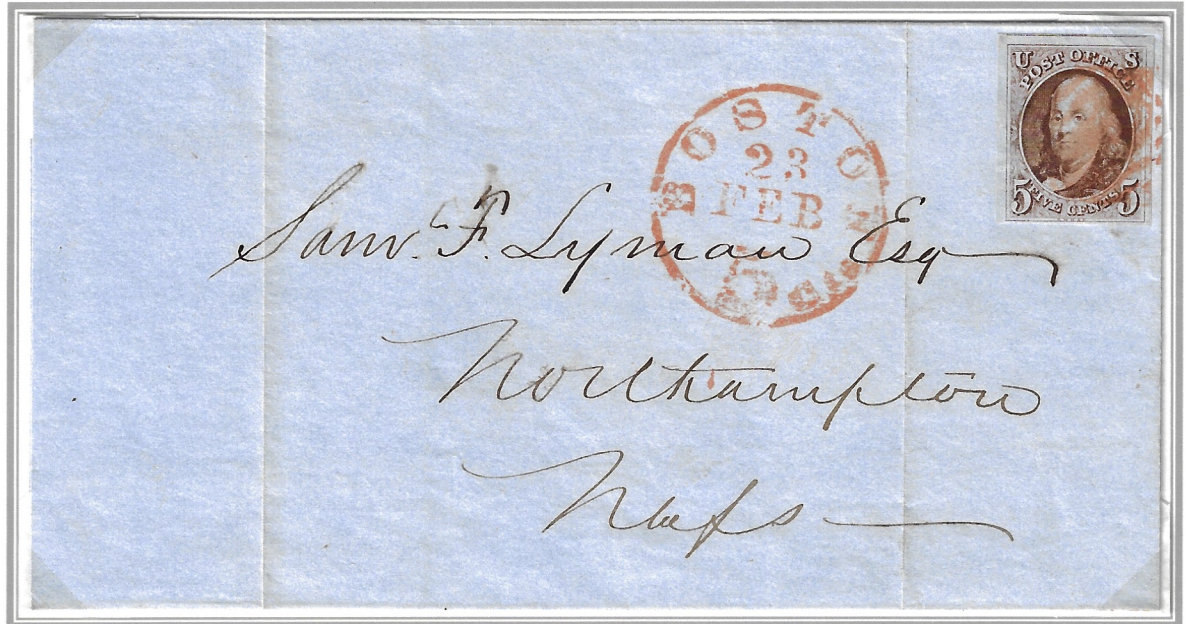 U S
POST OFFICE
5 FIVE CENTS 5
BOSTON
23
FEB
5 cts
Saml. F. Lyman Esq
Northampton
Mass